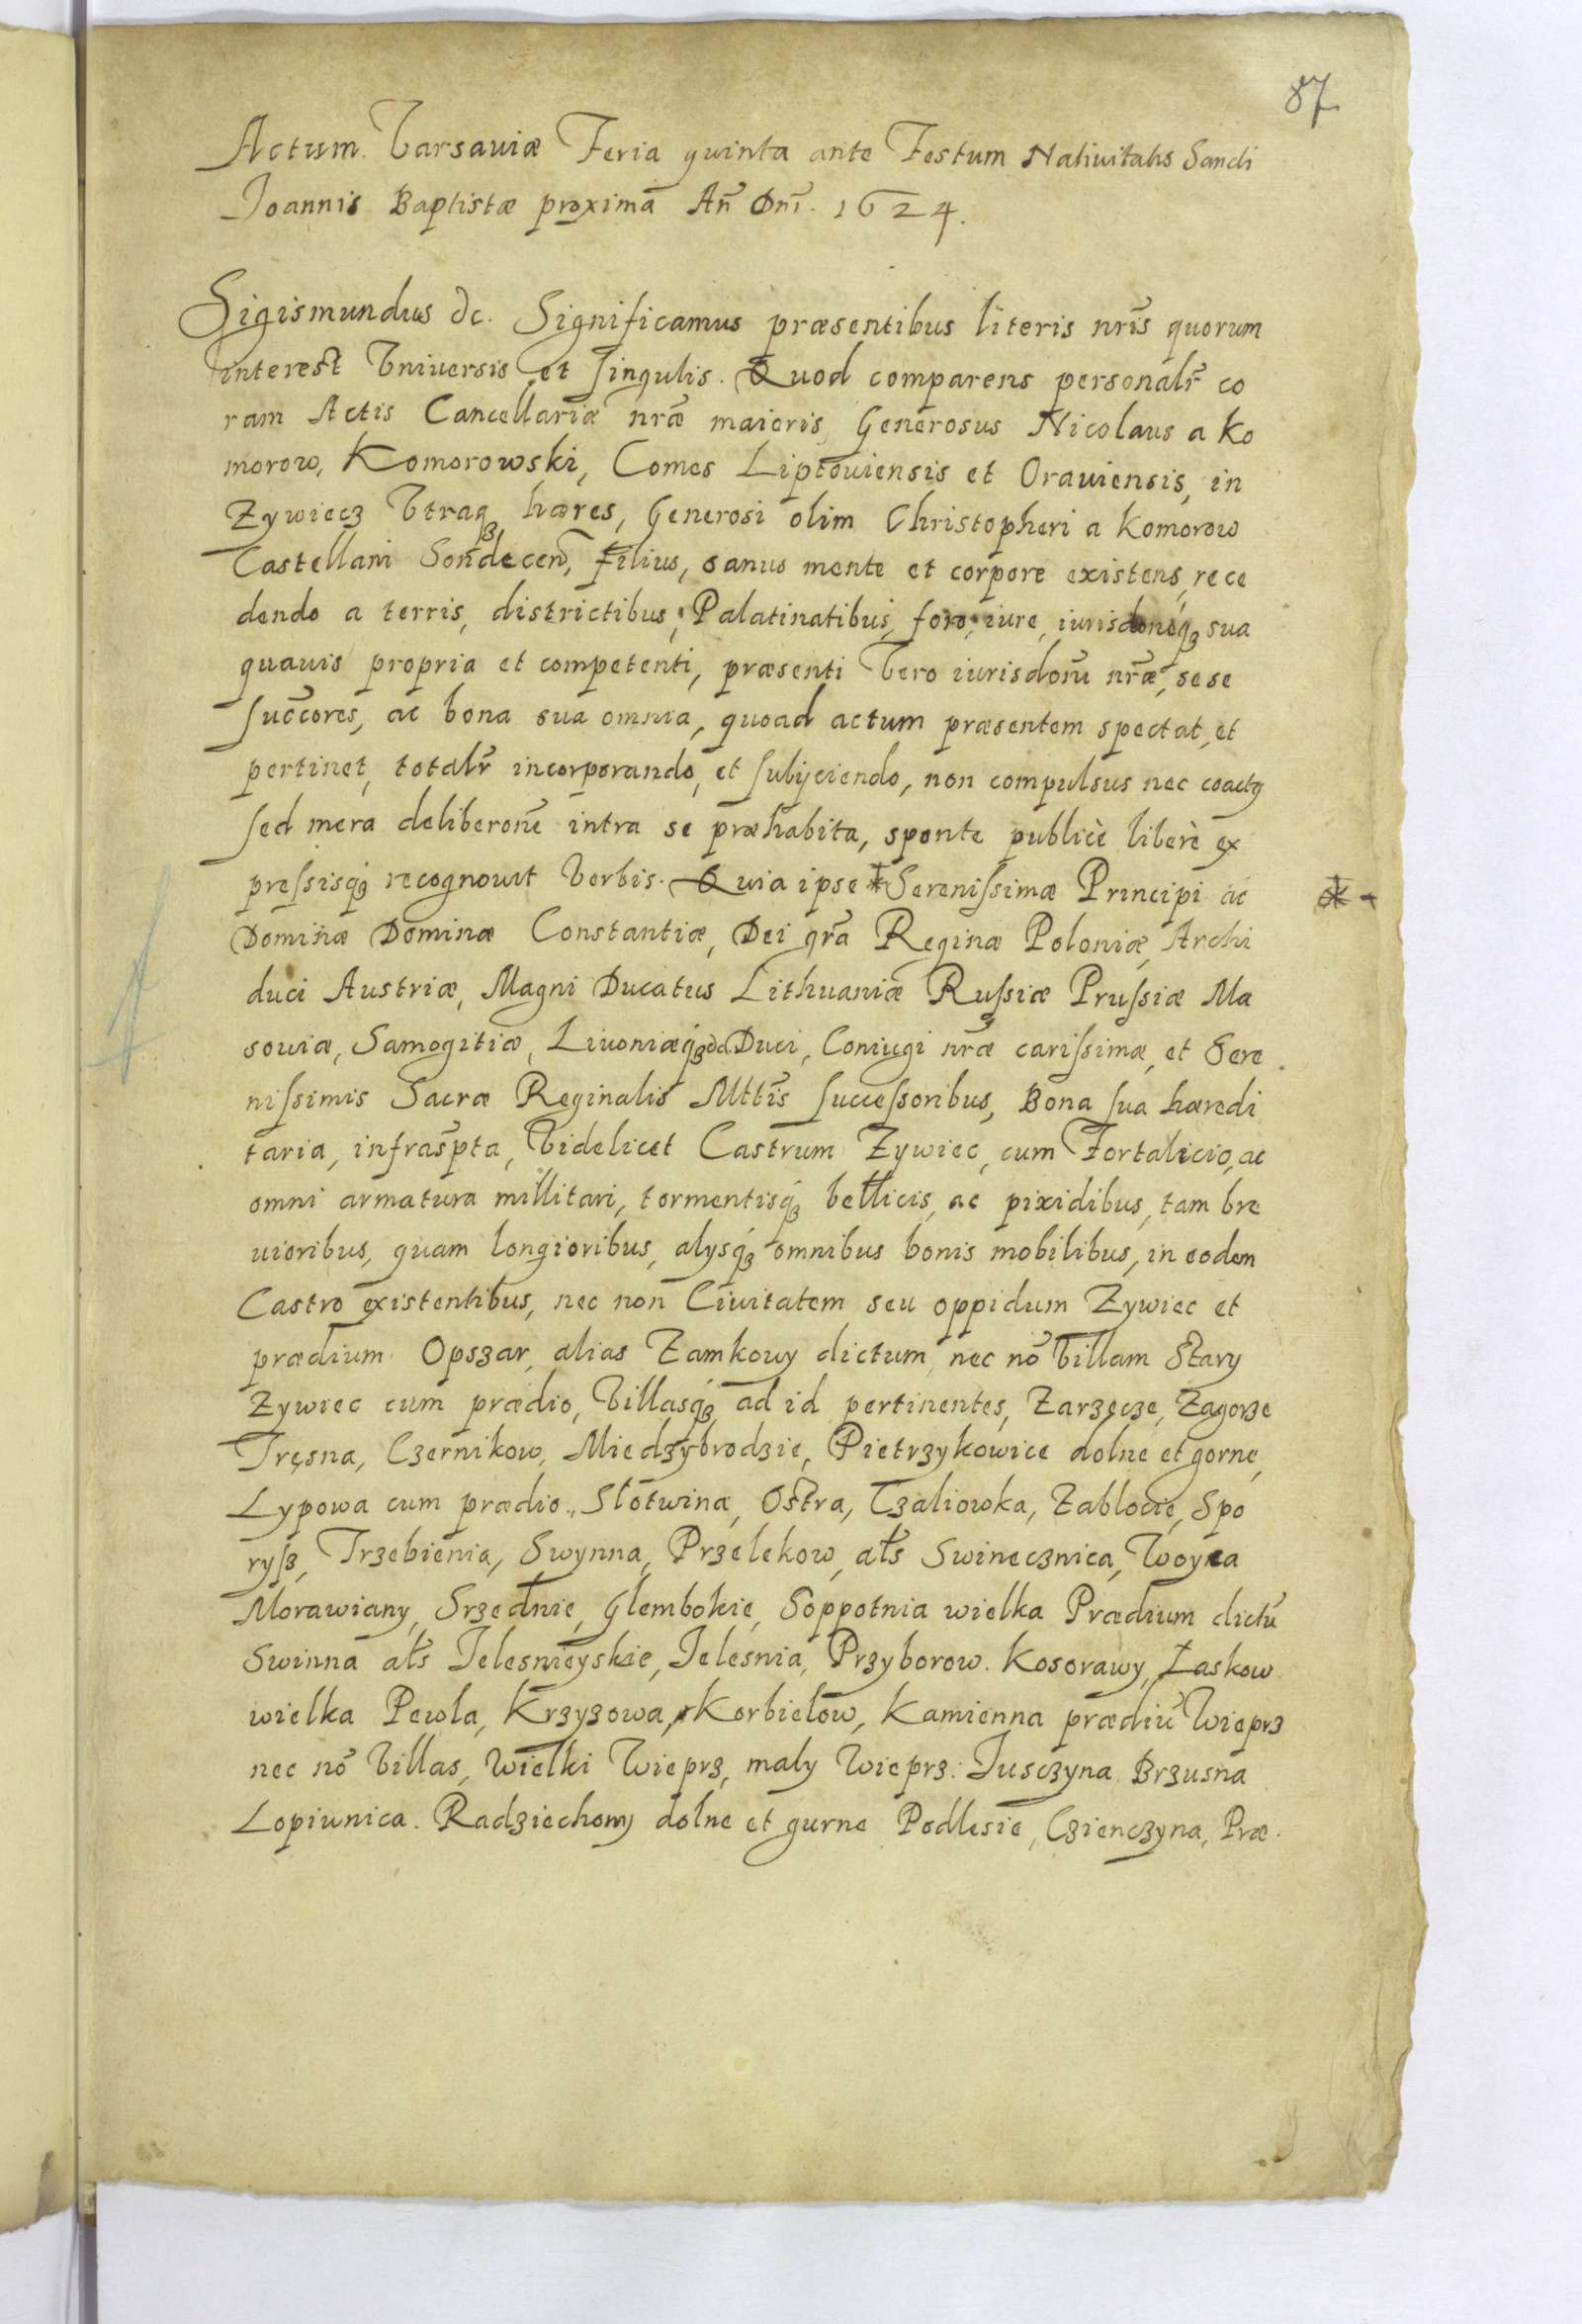 87
Actum Varsaviæ Feria quinta ante Festum Nativitatis Sancti
Joannis Baptistæ proximā An̄ Dn̄i. 1624.
Sigismundus &c. Significamus præsentibus literis nr̄is quorum
interest Vniversis et singulis. Quod comparens personalr̄ co
ram Actis Cancellariæ nr̄æ maioris, Generosus Nicolaus a Ko
morow, Komorowski, Comes Liptoviensis et Oraviensis, in
Zywiecz Vtraqꝫ hæres, Generosi olim Christopheri a Komorow
Castellani Sondecen̄, Filius, sanus mente et corpore existens, rece
dendo a terris, districtibus, Palatinatibus, foro, iure, iurisdoneqꝫ sua
quavis propria et competenti, præsenti Vero iurisdon̄i nr̄æ, sese
succ̄ores, ac bona sua omnia, quoad actum præsentem spectat, et
pertinet, totalr̄ incorporando, et subijciendo, non compulsus nec coactꝰ
sed mera deliberon̄e intra se præhabita, sponte publicè liberè ex
pressisqꝫ recognovit Verbis. Quia ipse * Serenissimæ Principi ac
*-
Dominæ Dominæ Constantiæ, Dei gr̄a Reginæ Poloniæ, Archi
duci Austriæ, Magni Ducatus Lithuaniæ Russiæ Prussiæ Ma
soviæ, Samogitiæ, Livoniæqꝫ &c Duci, Coniugi nr̄æ carissimæ, et Sere
nissimis Sacræ Reginalis Mttis̄ successoribus, Bona sua hæredi
taria, infrasp̄ta, Videlicet Castrum Zywiec, cum Fortalicio, ac
omni armatura millitari, tormentisqꝫ bellicis, ac pixidibus, tam bre
vioribus, quam longioribus, alysqꝫ omnibus bonis mobilibus, in eodem
Castro existentibus, nec non Civitatem seu oppidum Zywiec et
prædium Opszar, alias Zamkowy dictum, nec nō Villam Stary
Zywiec cum prædio, Villasqꝫ ad id pertinentes, Zarzęcze, Zagorze
Tręsna, Czernikow, Miedzybrodzie, Pietrzykowice dolne et gorne,
Lypowa cum prædio., Słotwina, Ostra, Czaliowka, Zablocie, Spo
rysz, Trzebienia, Swynna, Przelekow, ałs Swinecznica, Woyca
Morawiany, Srzednie, Glembokie, Soppotnia wielka Prædium dictū
Swinna ałs Jelesnieyskie, Jelesnia, Przyborow. Kosorawy, Łaskow
wielka Pewla, Krzyzowa, Korbielow, Kamienna prædiū Wieprz
nec nō Villas, Wielki Wieprz, maly Wieprz. Jusczyna Brzusna
Lopiwnica. Radziechowy dolne et gurne Podlesie, Czienczyna, Præ.